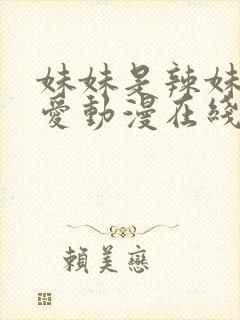 妹妹是辣妹
愛動漫在綫
賴美戀